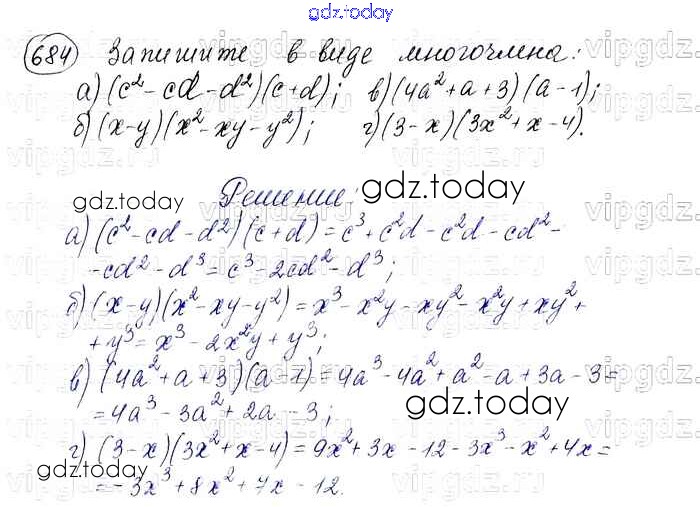 gdz.today
684 Запишите в виде многочлена:
а) (c² - cd - d²)(c + d); в) (4a² + a + 3)(a - 1);
б) (x - y)(x² - xy - y²); г) (3 - x)(3x² + x - 4).
gdz.today Решение: gdz.today
а) (c² - cd - d²)(c + d) = c³ + c²d - c²d - cd² -
- cd² - d³ = c³ - 2cd² - d³;
б) (x - y)(x² - xy - y²) = x³ - x²y - xy² - x²y + xy² +
+ y³ = x³ - 2x²y + y³;
в) (4a² + a + 3)(a - 1) = 4a³ - 4a² + a² - a + 3a - 3 =
= 4a³ - 3a² + 2a - 3;
gdz.today
г) (3 - x)(3x² + x - 4) = 9x² + 3x - 12 - 3x³ - x² + 4x =
gdz.today
= -3x³ + 8x² + 7x - 12.